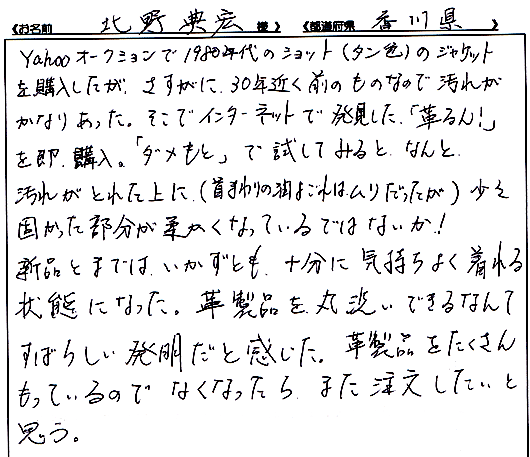 《お名前 北野典宏 様》 《都道府県 香川県 》
Yahooオークションで1980年代のショット(タン色)のジャケット
を購入したが、さすがに、30年近く前のものなので汚れが
かなりあった。そこでインターネットで発見した、「革るん!」
を即、購入。「ダメもと」で試してみると、なんと、
汚れがとれた上に、(首まわりの油よごれはムリだったが)少々
固かった部分が柔かくなっているではないか!
新品とまでは、いかずとも、十分に気持ちよく着れる
状態になった。革製品を丸洗いできるなんて
すばらしい発明だと感じた。革製品をたくさん
もっているのでなくなったら、また注文したいと
思う。